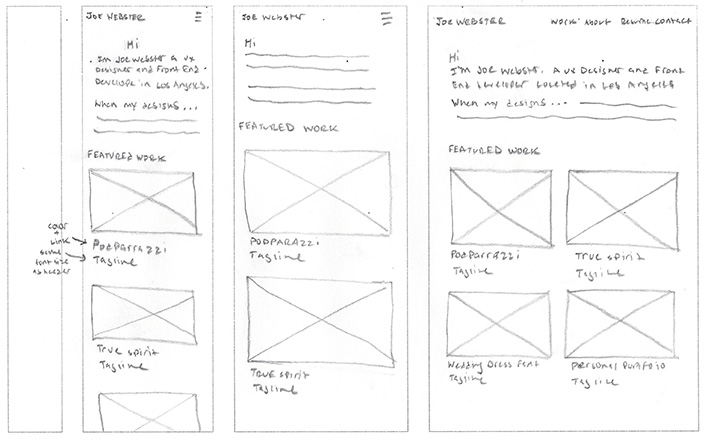 JOE WEBSTER
Hi
I'm JOE Webster a UX
Designer and Front End
Develope in Los Angeles.
When my designs...
FEATURED WORK
color
+
link
same
font size
as header
PodParrazzi
Tagline
True spirit
Tagline
JOE Webster
Hi
FEATURED WORK
PODPARAZZi
Tagline
TRUE spirit
Tagline
JOE WEBSTER
WORK ABOUT CONTACT
Hi
I'm JOE Webster. A UX Designer and Front
End Developer located in Los Angeles
When my designs...
FEATURED WORK
PodParrazzi
Tagline
True spirit
Tagline
Wedding Dress Fent
Tagline
Personal Portfolio
Tagline